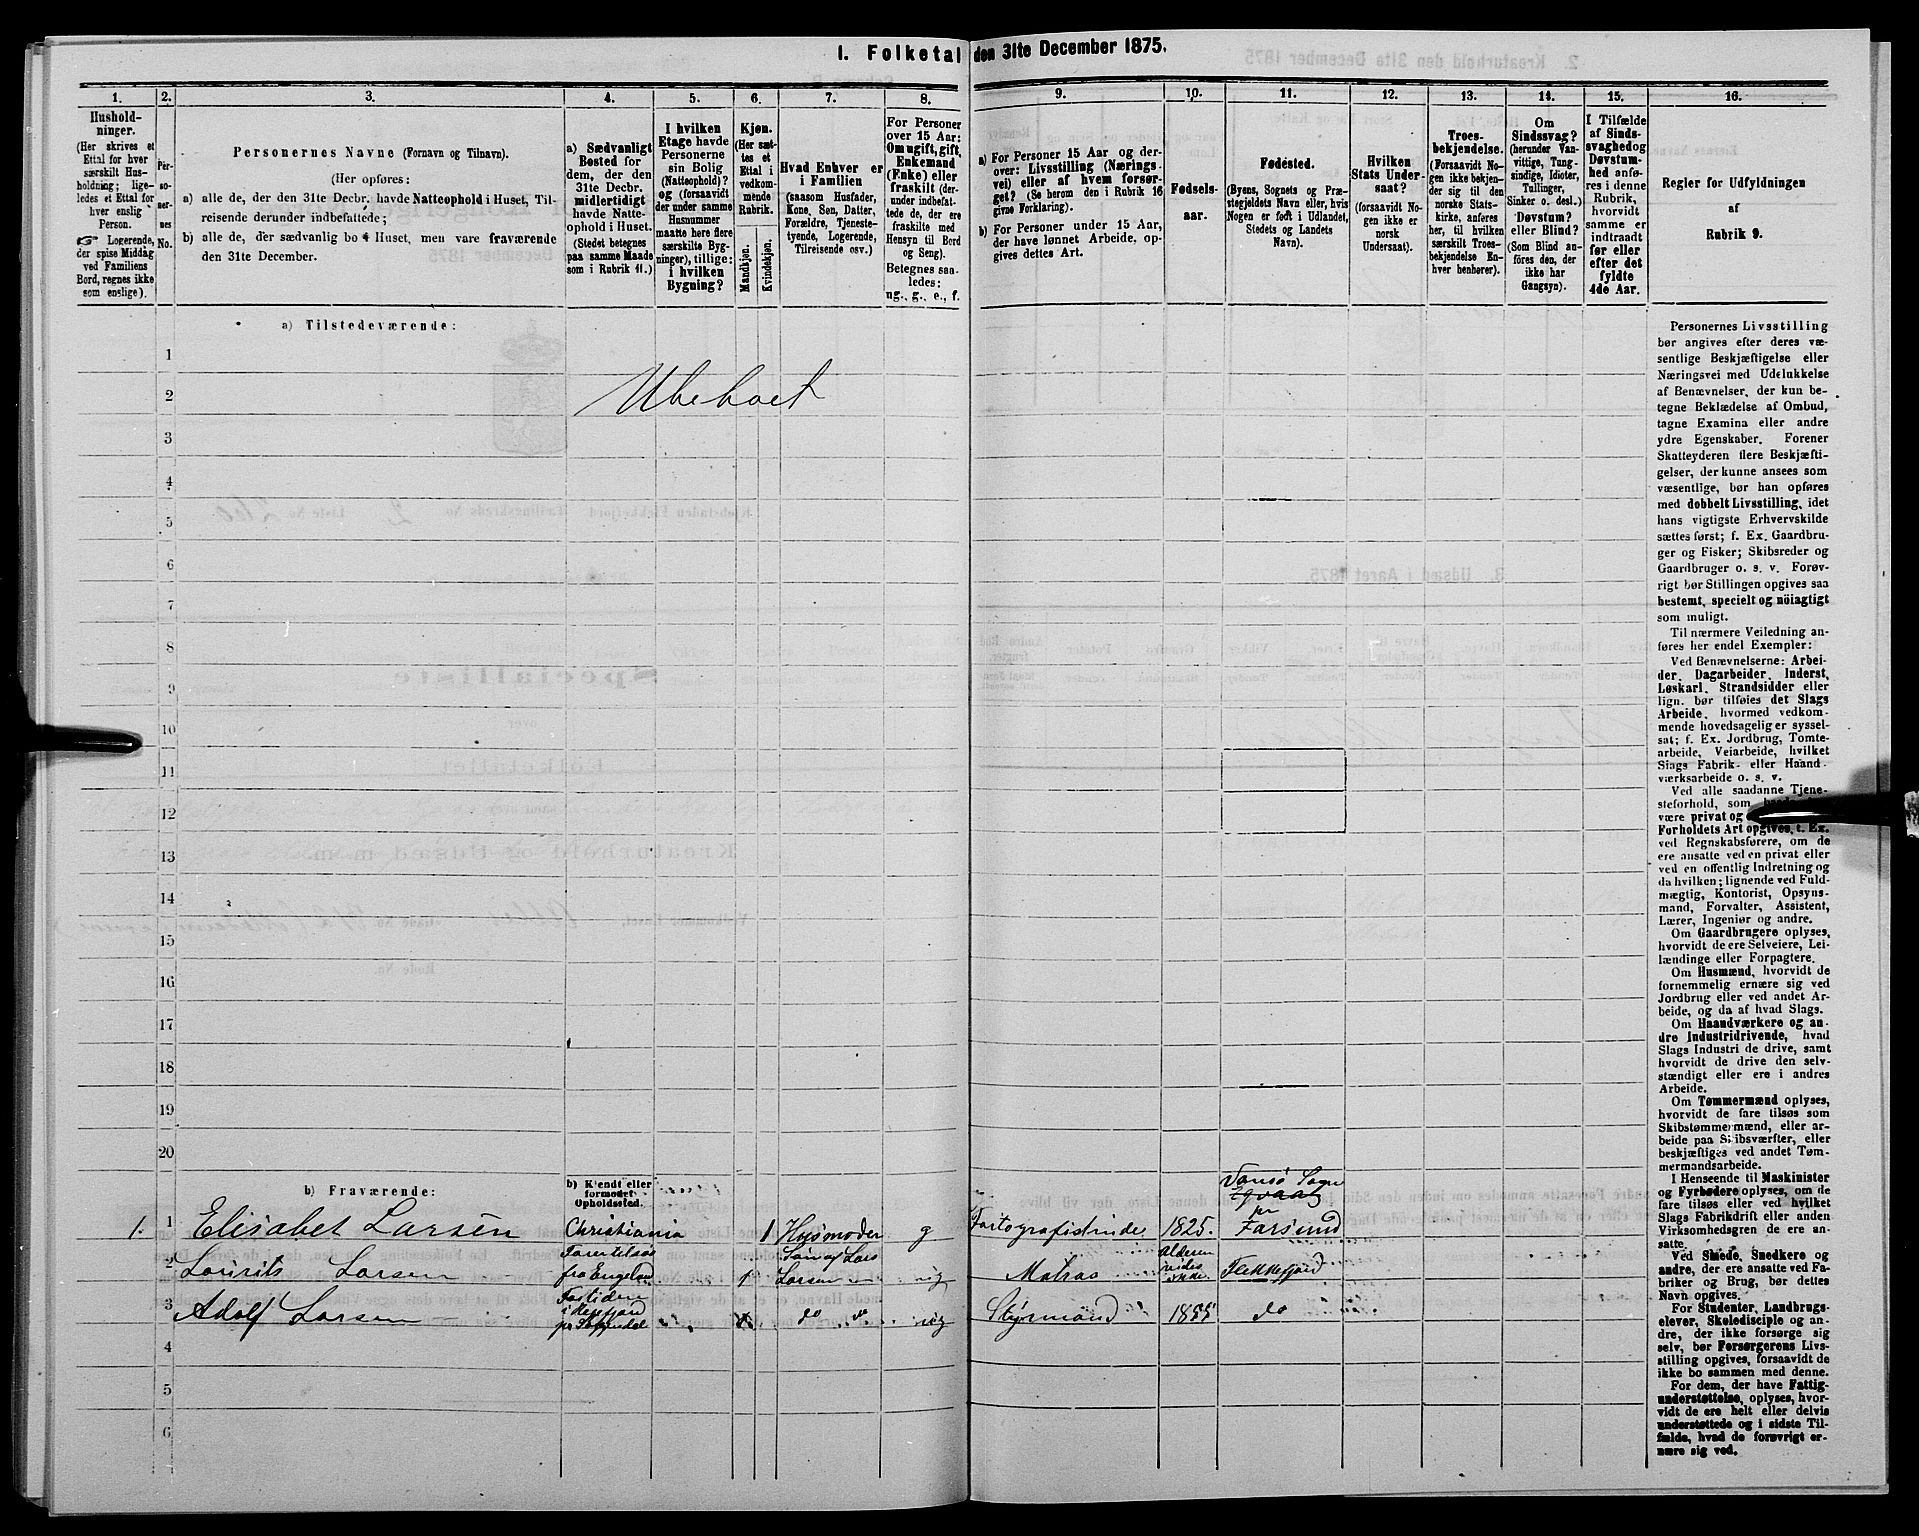 I. Folketal den 31te December 1875.
1.
Hushold-
ninger.
(Her skrives et
Ettal for hver
særskilt Hus-
holdning; lige-
ledes et Ettal for
hver enslig
Person.
☞ Logerende,
der spise Middag
ved Familiens
Bord, regnes ikke
som enslige).
2.
Per-
so-
ner-
nes
No.
3.
Personernes Navne (Fornavn og Tilnavn).
(Her opføres:
a) alle de, der den 31te Decbr. havde Natteophold i Huset, Til-
reisende derunder indbefattede;
b) alle de, der sædvanlig bo i Huset, men vare fraværende
den 31te December.
4.
a) Sædvanligt
Bosted for
dem, der den
31te Decbr.
midlertidigt
havde Natte-
ophold i Huset.
(Stedet betegnes
paa samme Maade
som i Rubrik 11.)
5.
I hvilken
Etage havde
Personerne
sin Bolig
(Natteophold)?
og (forsaavidt
der under samme
Husnummer
maatte høre flere
særskilte Byg-
ninger), tillige:
i hvilken
Bygning?
6.
Kjøn.
(Her sæt-
tes et
Ettal i
vedkom-
mende
Rubrik.
Mandkjøn.
Kvindekjøn.
7.
Hvad Enhver er
i Familien
(saasom Husfader,
Kone, Søn, Datter,
Forældre, Tjeneste-
tyende, Logerende,
Tilreisende osv.)
8.
For Personer
over 15 Aar:
Om ugift, gift,
Enkemand
(Enke) eller
fraskilt (der-
under indbefat-
tede de, der ere
fraskilte med
Hensyn til Bord
og Seng).
Betegnes saa-
ledes:
ug., g., e., f.
9.
a) For Personer 15 Aar og der-
over: Livsstilling (Nærings-
vei) eller af hvem forsør-
get? (Se herom den i Rubrik 16
givne Forklaring).
b) For Personer under 15 Aar,
der have lønnet Arbeide, op-
gives dettes Art.
10.
Fødsels-
aar.
11.
Fødested.
(Byens, Sognets og Præ-
stegjeldets Navn eller, hvis
Nogen er født i Udlandet,
Stedets og Landets
Navn).
12.
Hvilken
Stats Under-
saat?
(forsaavidt No-
gen ikke er
norsk
Undersaat).
13.
Troes-
bekjendelse.
(Forsaavidt No-
gen ikke bekjen-
der sig til den
norske Stats-
kirke, anføres
her, til hvilken
særskilt Troes-
bekjendelse En-
hver henhører).
14.
Om
Sindssvag?
(herunder Van-
vittige, Tung-
sindige, Idioter,
Tullinger,
Sinker o. desl.)
Døvstum?
eller Blind?
(Som Blind an-
føres den, der
ikke har
Gangsyn).
15.
I Tilfælde
af Sinds-
svaghed og
Døvstum-
hed anfø-
res i denne
Rubrik,
hvorvidt
samme er
indtraadt
før eller
efter det
fyldte
4de Aar.
16.
Regler for Udfyldningen
af
Rubrik 9.
a) Tilstedeværende:
1
2 Ubeboet
3
4
5
6
7
8
9
10
11
12
13
14
15
16
17
18
19
20
b) Fraværende:
b) Kjendt eller
formodet
Opholdssted.
1. 1 Elisabet Larsen Christiania 1 Husmoder g 1825. Farsund
2 Lourits Larsen fra England 1 Søn af Lars Larsen ug Matros Alderen vides ikke. Flekkefjord
3 Adolf Larsen 1 do do ug Styrmand 1855 do
4
5
6
Personernes Livsstilling
bør angives efter deres væ-
sentlige Beskjæftigelse eller
Næringsvei med Udelukkelse
af Benævnelser, der kun be-
tegne Beklædelse af Ombud,
tagne Examina eller andre
ydre Egenskaber. Forener
Skatteyderen flere Beskjæfti-
gelser, der kunne ansees som
væsentlige, bør han opføres
med dobbelt Livsstilling, idet
hans vigtigste Erhvervskilde
sættes først; f. Ex. Gaardbru-
ger og Fisker; Skibsreder og
Gaardbruger o. s. v. Forøv-
rigt bør Stillingen opgives saa
bestemt, specielt og nöiagtigt
som muligt.
Til nærmere Veiledning an-
føres her endel Exempler:
Ved Benævnelserne: Arbei-
der, Dagarbeider, Inderst,
Løskarl, Strandsidder eller
lign. bør tilføies det Slags
Arbeide, hvormed vedkom-
mende hovedsagelig er syssel-
sat; f. Ex. Jordbrug, Tomte-
arbeide, Veiarbeide, hvilket
Slags Fabrik- eller Haand-
værksarbeide o. s. v.
Ved alle saadanne Tjene-
steforhold, som
være privat og
Forholdets Art opgives, t. Ex.
ved Regnskabsførere, om de
ere ansatte ved en privat eller
ved en offentlig Indretning og
da hvilken; lignende ved Fuld-
mægtig, Kontorist, Opsyns-
mand, Forvalter, Assistent,
Lærer, Ingeniør og andre.
Om Gaardbrugere oplyses,
hvorvidt de ere Selveiere, Lei-
lændinge eller Forpagtere.
Om Husmænd, hvorvidt de
fornemmelig ernære sig ved
Jordbrug eller ved andet Ar-
beide, og da af hvad Slags.
Om Haandværkere og an-
dre Industridrivende, hvad
Slags Industri de drive, samt
hvorvidt de drive den selv-
stændigt eller ere i andres
Arbeide.
Om Tømmermænd oplyses,
hvorvidt de fare tilsøs som
Skibstømmermænd, eller ar-
beide paa Skibsværfter, eller
beskjæftiges ved andet Tøm-
mermandsarbeide.
I Henseende til Maskinister
og Fyrbødere oplyses, om de
fare tilsøs eller ved hvilket
Slags Fabrikdrift eller anden
Virksomhedsgren de ere an-
satte.
Ved Smede, Snedkere og
andre, der ere ansatte ved Fa-
briker og Brug, bør dettes
Navn opgives.
For Studenter, Landbrugs-
elever, Skoledisciple og an-
dre, der ikke forsørge sig
selv, bør Forsørgerens Livs-
stilling opgives, forsaavidt de
ikke bo sammen med denne.
For dem, der have Fattig-
understøttelse, oplyses, hvor-
vidt de ere helt eller delvis
understøttede og i sidste Til-
fælde, hvad de forøvrigt er-
nære sig ved.